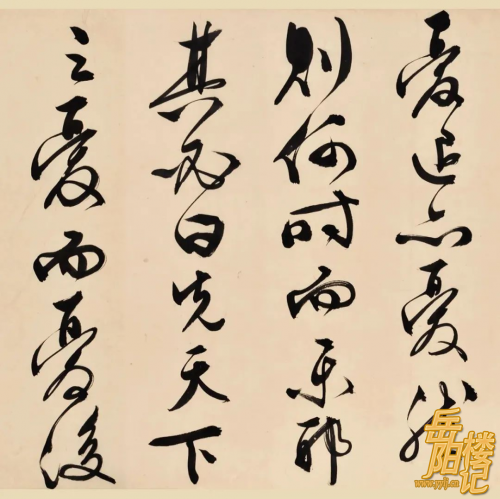 憂退亦憂然
則何時而樂耶
其必曰先天下
之憂而憂後
岳阳楼记